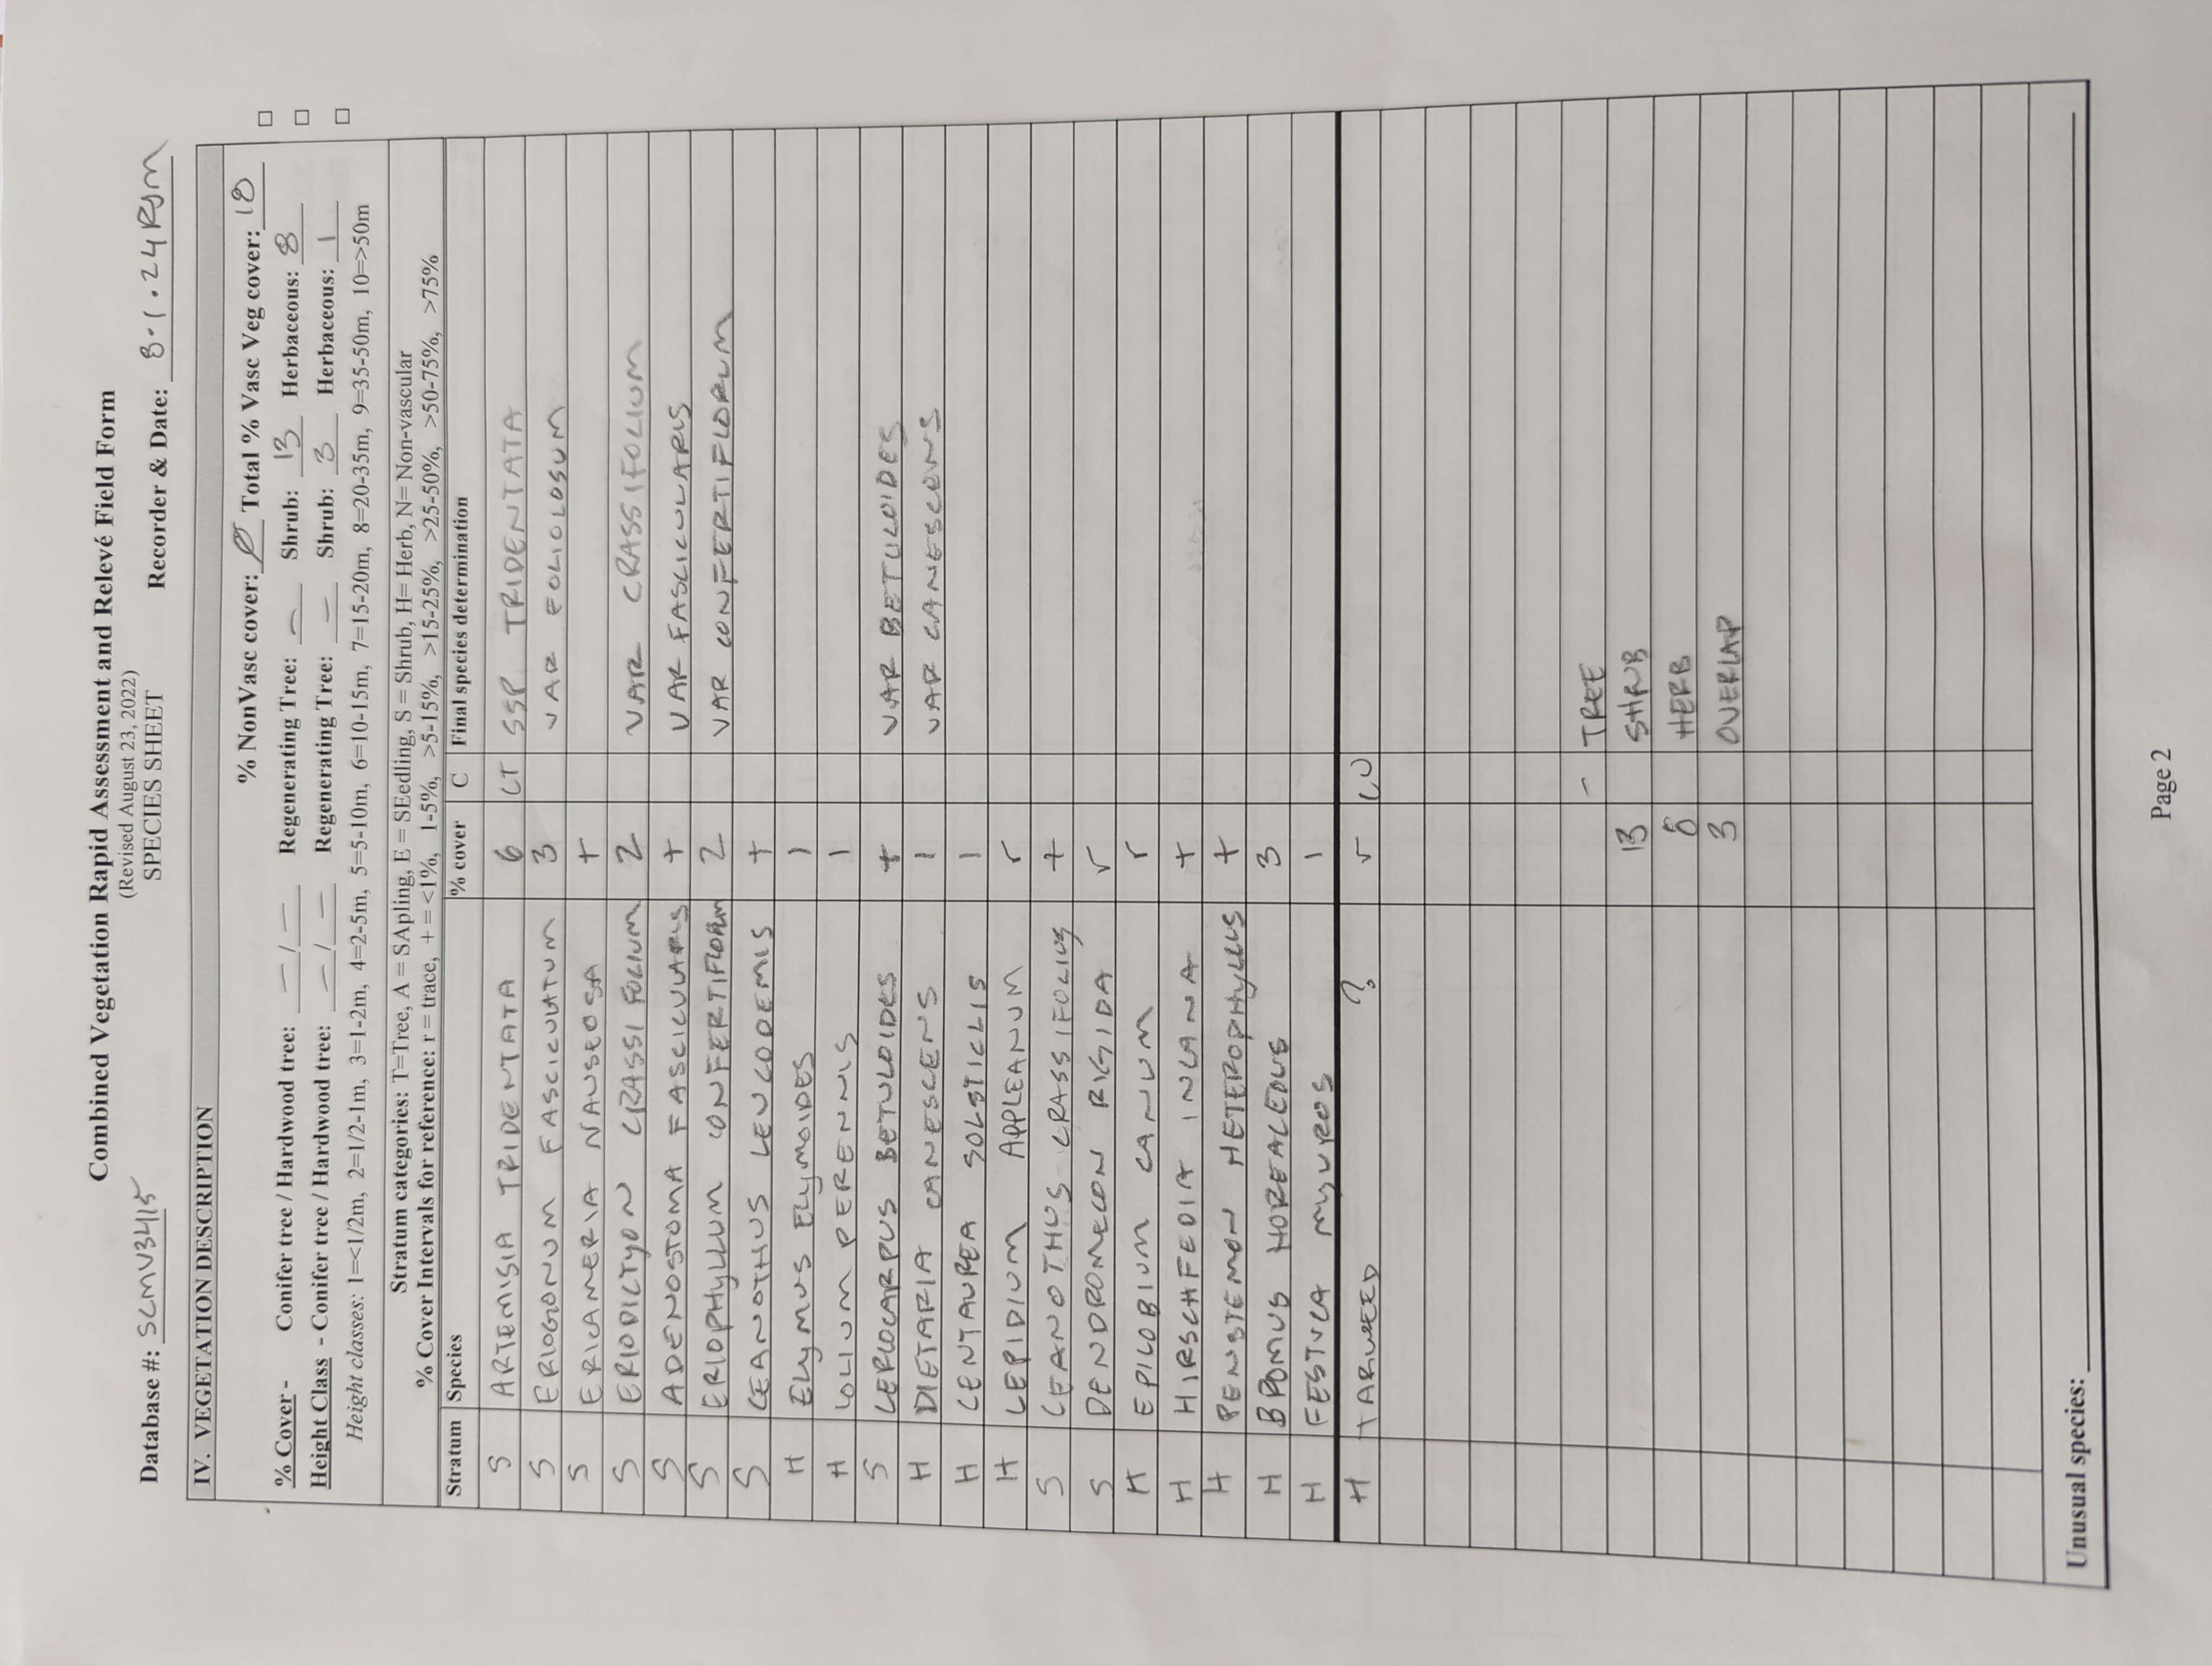 Combined Vegetation Rapid Assessment and Relevé Field Form
(Revised August 23, 2022)
SPECIES SHEET
Database #: SCMV3415 Recorder & Date: 8.1.24 RJM
IV. VEGETATION DESCRIPTION
% NonVasc cover: Ø Total % Vasc Veg cover: 18 □
% Cover - Conifer tree / Hardwood tree: – / – Regenerating Tree: – Shrub: 13 Herbaceous: 8 □
Height Class - Conifer tree / Hardwood tree: – / – Regenerating Tree: – Shrub: 3 Herbaceous: 1 □
Height classes: 1=<1/2m, 2=1/2-1m, 3=1-2m, 4=2-5m, 5=5-10m, 6=10-15m, 7=15-20m, 8=20-35m, 9=35-50m, 10=>50m
Stratum categories: T=Tree, A = SApling, E = SEedling, S = Shrub, H= Herb, N= Non-vascular
% Cover Intervals for reference: r = trace, + = <1%, 1-5%, >5-15%, >15-25%, >25-50%, >50-75%, >75%
Stratum Species % cover C Final species determination
S ARTEMISIA TRIDENTATA 6 CT SSP. TRIDENTATA
S ERIOGONUM FASCICULATUM 3 VAR FOLIOLOSUM
S ERICAMERIA NAUSEOSA +
S ERIODICTYON CRASSIFOLIUM 2 VAR CRASSIFOLIUM
S ADENOSTOMA FASCICULARIS + VAR FASCICULARIS
S ERIOPHYLLUM CONFERTIFLORUM 2 VAR CONFERTIFLORUM
S CEANOTHUS LEUCODEMIS +
H ELYMUS ELYMOIDES 1
H LOLIUM PERENNIS 1
S CERCOCARPUS BETULOIDES + VAR BETULOIDES
H DIETARIA CANESCENS 1 VAR CANESCENS
H CENTAUREA SOLSTICLIS 1
H LEPIDIUM APPLEANUM r
S CEANOTHUS CRASSIFOLIUS +
S DENDROMECON RIGIDA r
H EPILOBIUM CANUM r
H HIRSCHFEDIA INCANA +
H PENSTEMON HETEROPHYLLUS +
H BROMUS HOREACEOUS 3
H FESTUCA MYUROS 1
H TARWEED ? r CU
– TREE
13 SHRUB
8 HERB
3 OVERLAP
Unusual species:
Page 2